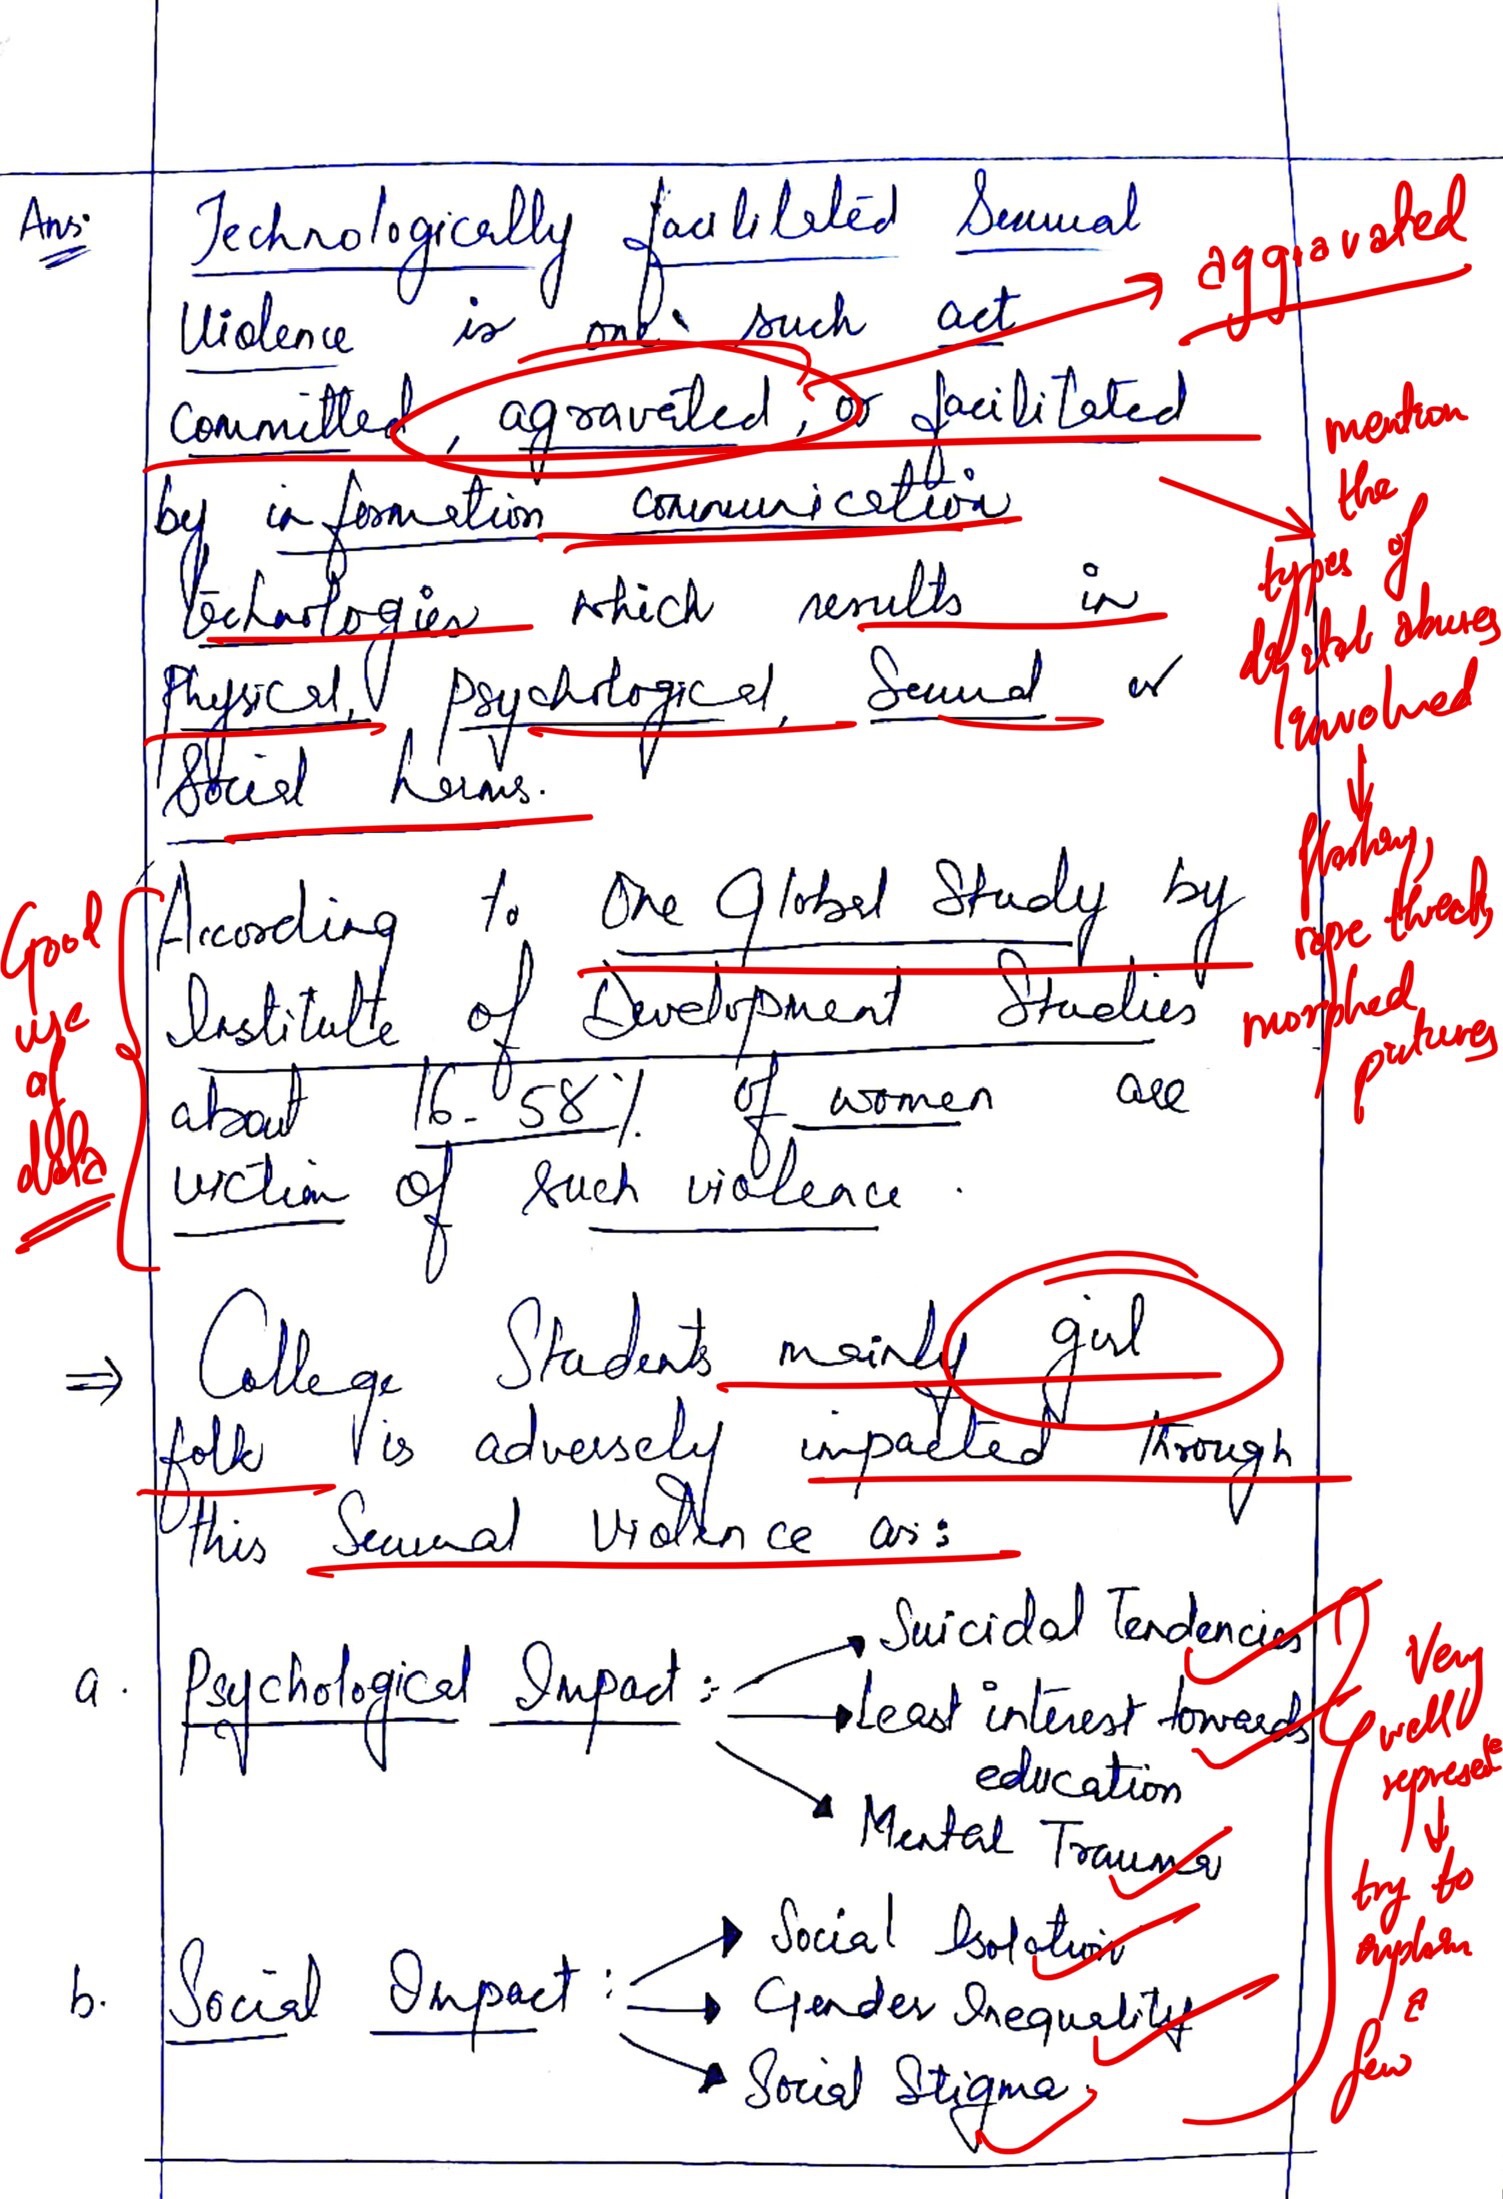 Ans:
Technologically facilitated Sexual
Violence is one such act
committed, agravated, or facilitated
by information communication
technologies which results in
Physical, psychological, Sexual or
Social harms.
According to One Global Study by
Institute of Development Studies
about 16-58% of women are
victim of such violence.
⇒ College Students mainly girl
folk is adversely impacted through
this Sexual Violence as:
a. Psychological Impact:
Suicidal Tendencies
Least interest towards
education
Mental Trauma
b. Social Impact:
Social Isolation
Gender Inequality
Social Stigma.
aggravated
mention
the
types of
digital abuses
involved
rape threats,
morphed
pictures
Good
use
of
data
Very
well
try to
explain
a
few